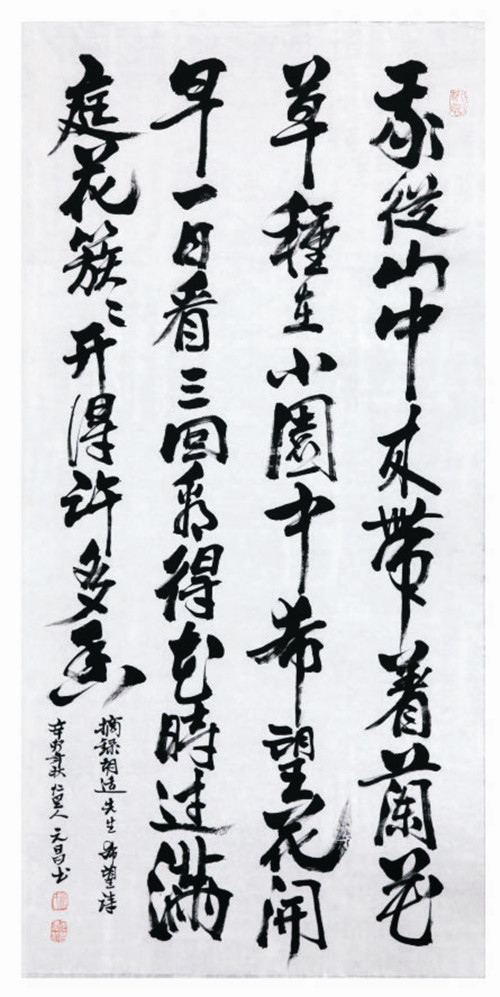 我從山中来帶着蘭花
草種在小園中希望花開
早一日看三回看得花時过滿
庭花簇〻开得許多香
摘錄胡适先生希望詩
辛卯年秋 人元昌书